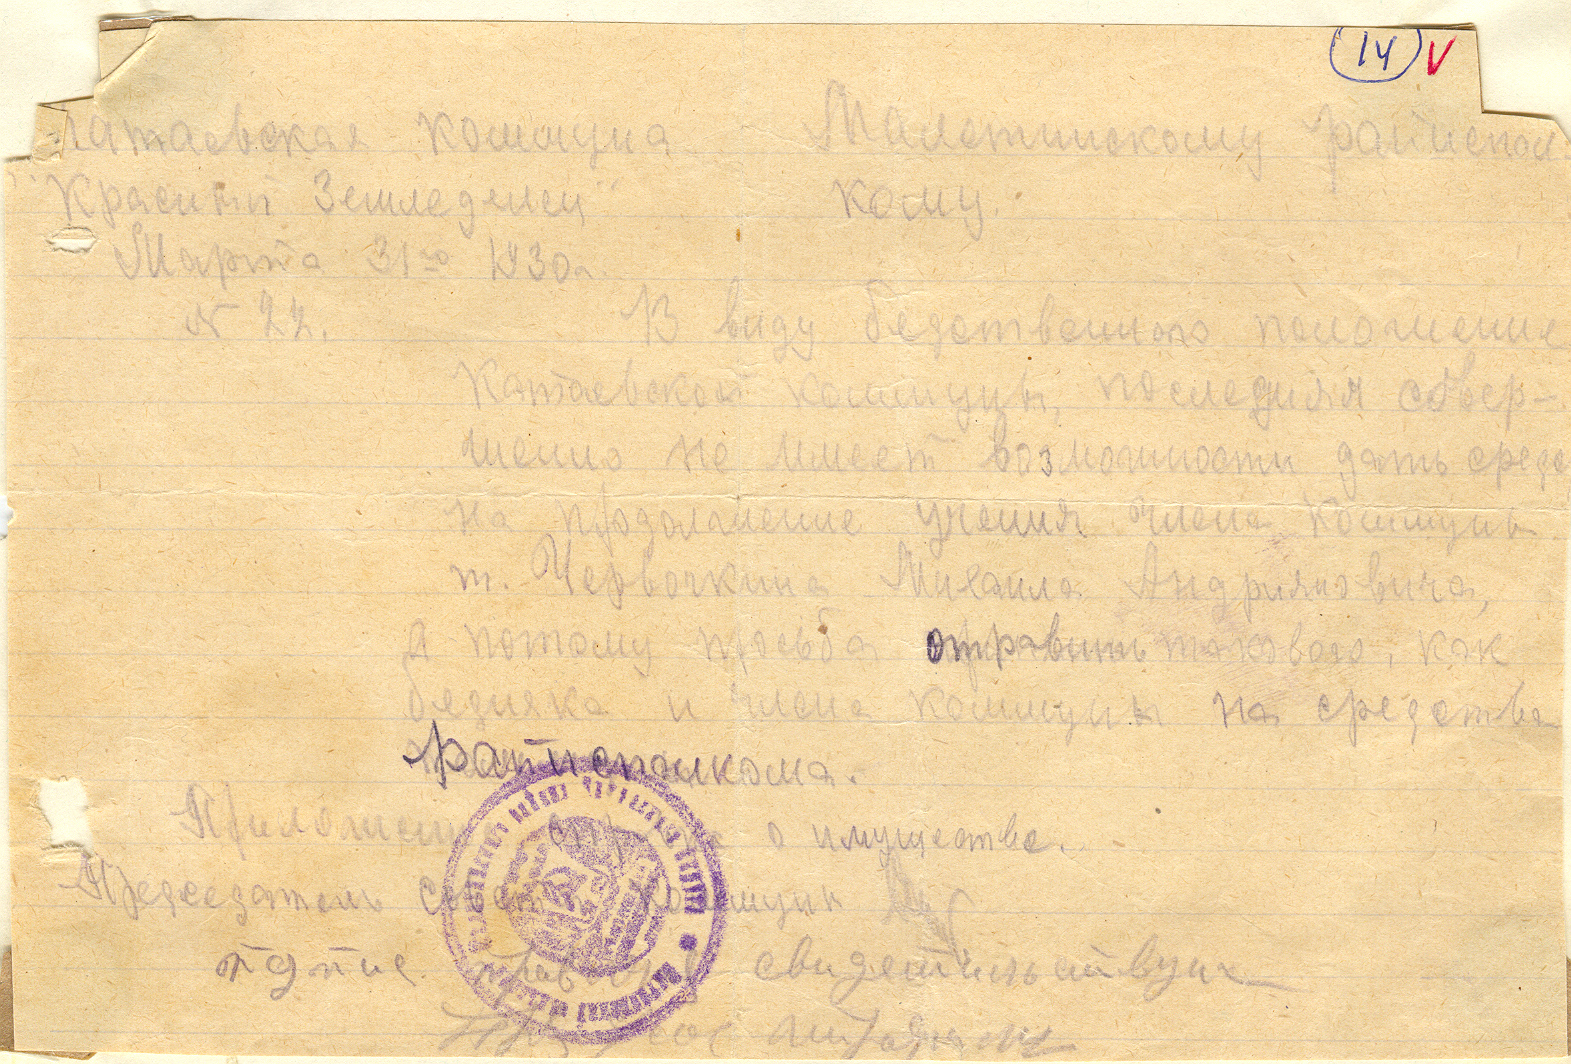 14 V
Катаевская коммуна
"Красный Земледелец"
Марта 31го 1930г.
№ 22.
Малетинскому райиспол-
кому.
В виду бедственного положения
Катаевской коммуны, последняя совер-
шенно не имеет возможности дать средс
на продолжение учения члена коммуны
т. Червочкина Михаила Андрияновича,
а потому просьба отправить такового, как
бедняка и члена коммуны на средства
райисполкома.
Приложение справка о имуществе.
Председатель совета коммуны
свидетельствую